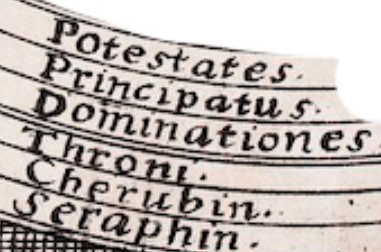 Potestates.
Principatus.
Dominationes
Throni.
Cherubin.
Seraphin.